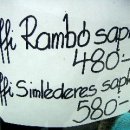 ffi Rambó sapk
480:-
ffi Simléderes sapk
580:-